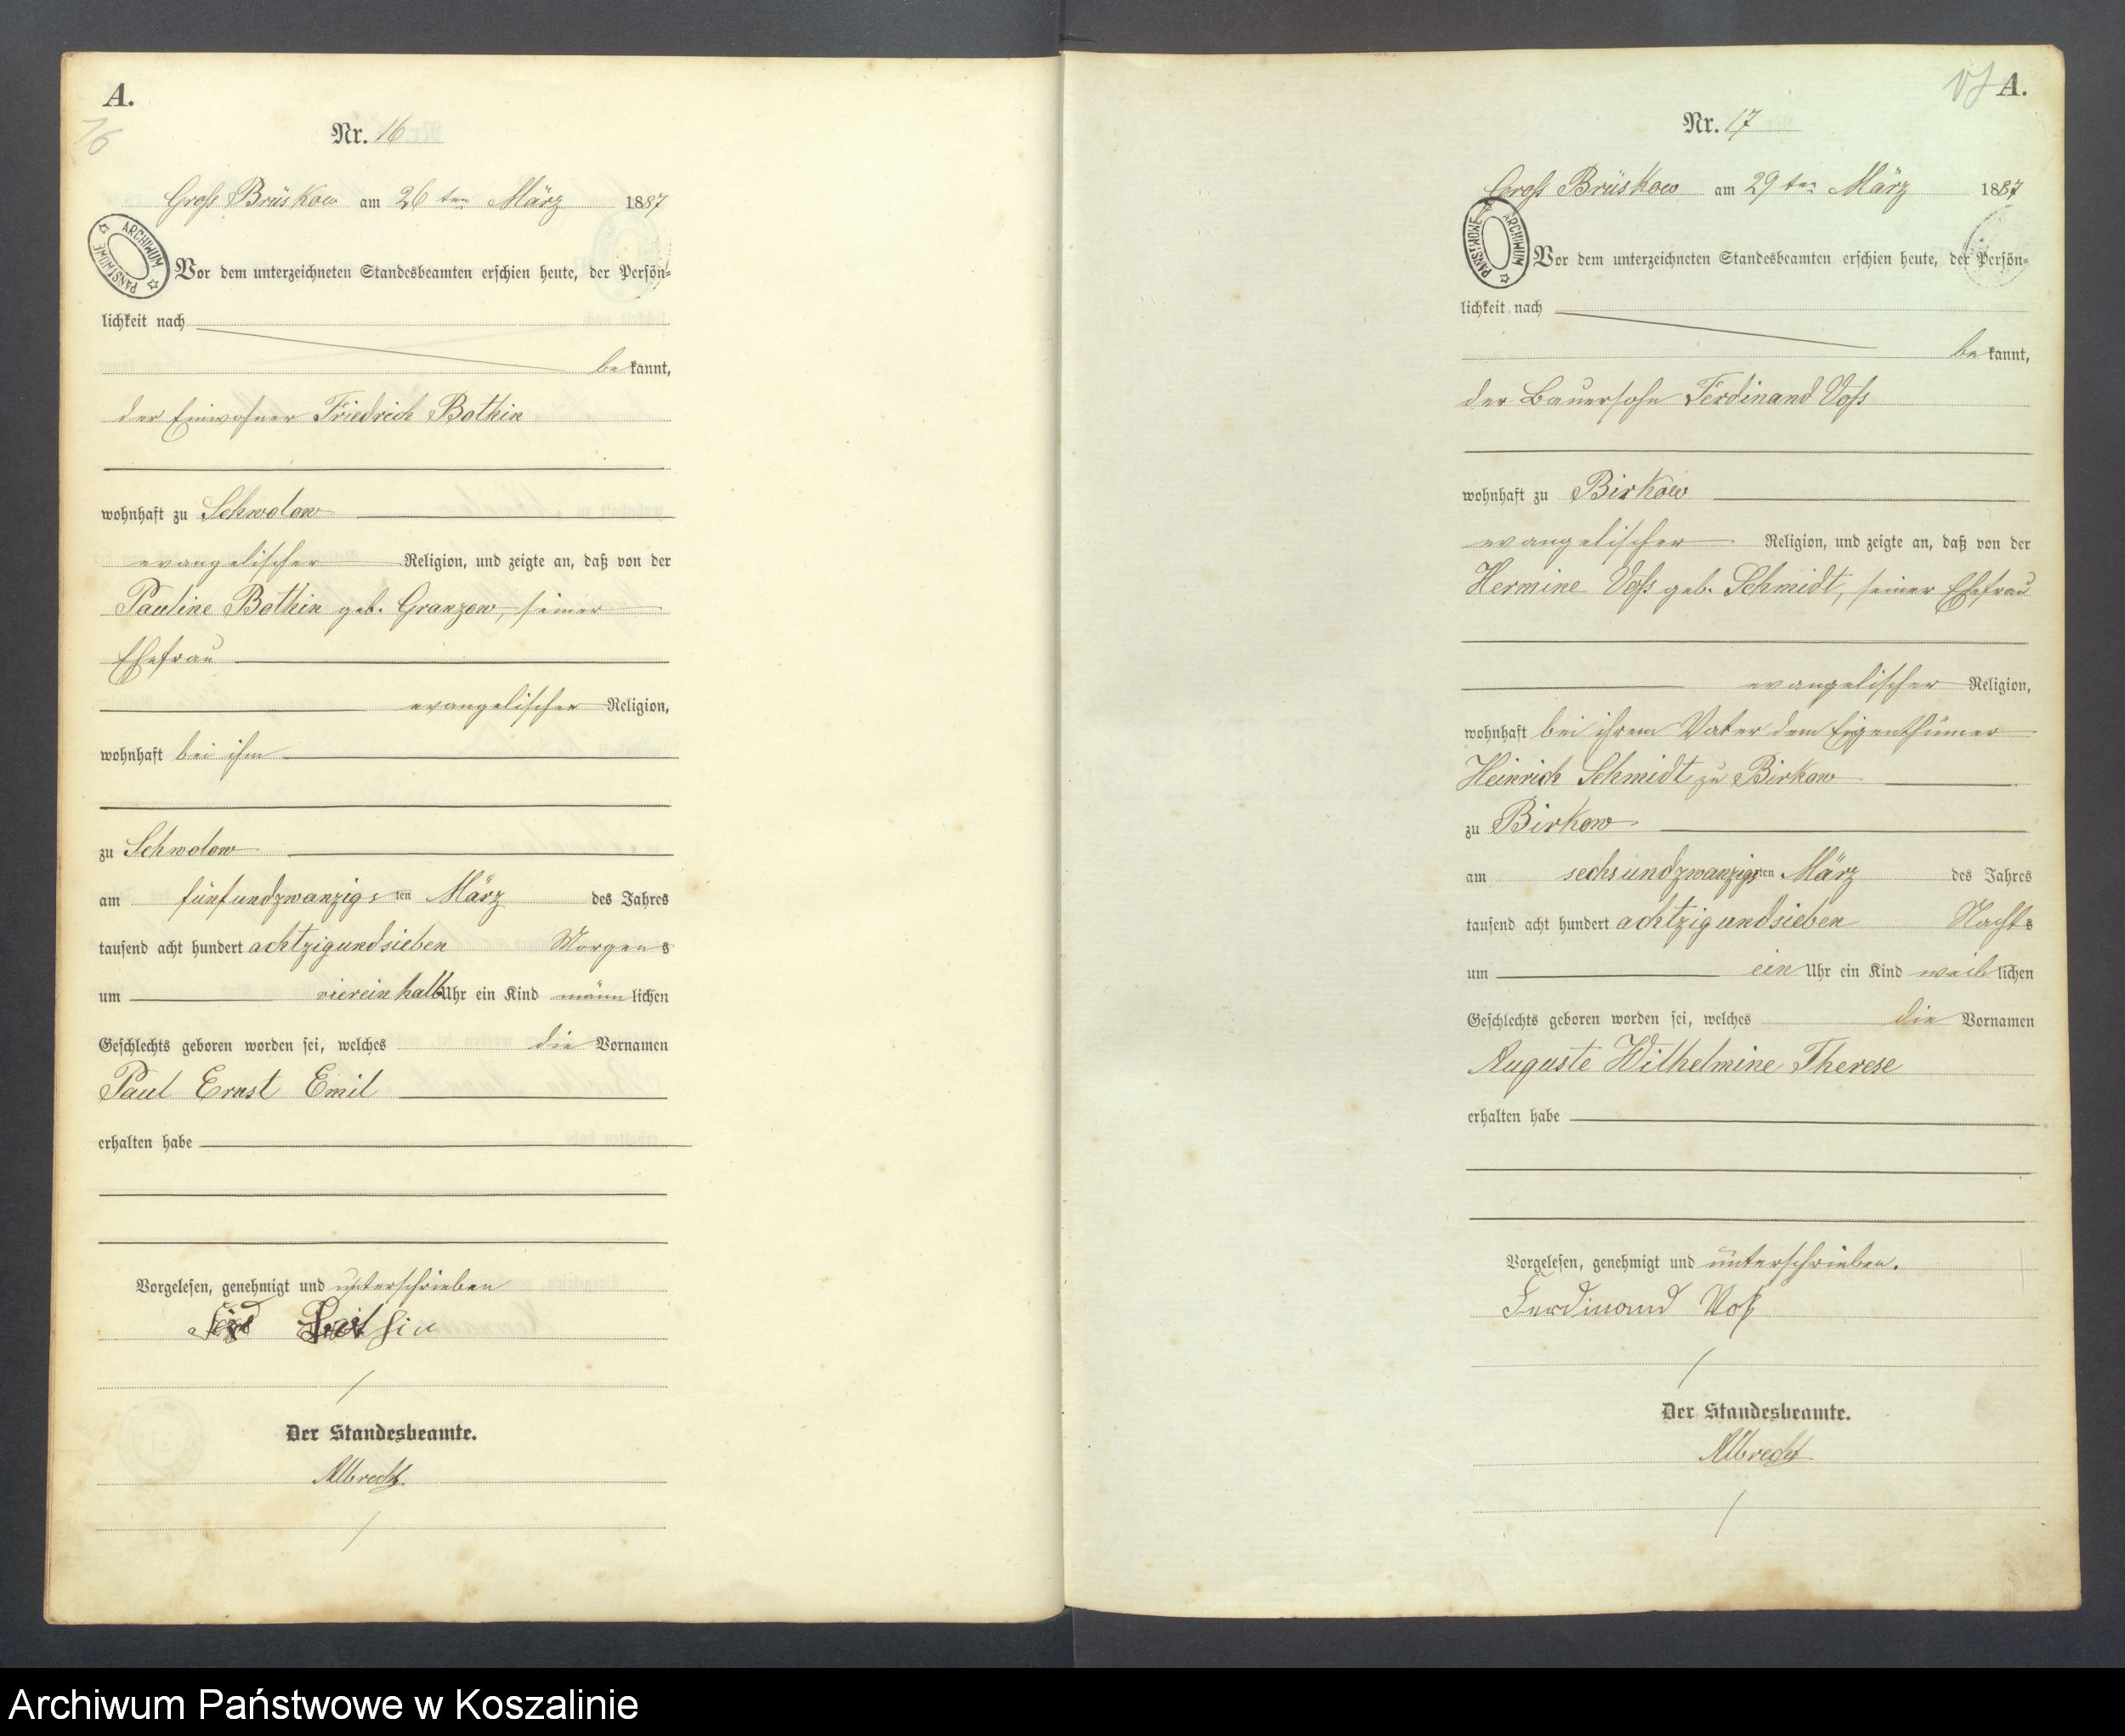 A.
16
Nr. 16
Groß Brüskow am 26 ten März 1887
ARCHIWUM PAŃSTWOWE
Vor dem unterzeichneten Standesbeamten erschien heute, der Persön-
lichkeit nach
be kannt,
der Einwohner Friedrich Bothin
wohnhaft zu Schwolow
evangelischer Religion, und zeigte an, daß von der
Pauline Bothin geb. Granzow, seiner
Ehefrau
evangelischer Religion,
wohnhaft bei ihm
zu Schwolow
am fünfundzwanzigs ten März des Jahres
tausend acht hundert achtzigundsieben Morgens
um viereinhalb Uhr ein Kind männlichen
Geschlechts geboren worden sei, welches die Vornamen
Paul Ernst Emil
erhalten habe
Vorgelesen, genehmigt und unterschrieben
Der Standesbeamte.
Albrecht
A.
Nr. 17
Groß Brüskow am 29 ten März 1887
ARCHIWUM PAŃSTWOWE
Vor dem unterzeichneten Standesbeamten erschien heute, der Persön-
lichkeit nach
be kannt,
der Bauersohn Ferdinand Voß
wohnhaft zu Birkow
evangelischer Religion, und zeigte an, daß von der
Hermine Voß geb. Schmidt, seiner Ehefrau
evangelischer Religion,
wohnhaft bei ihrem Vater dem Eigenthümer
Heinrich Schmidt zu Birkow
zu Birkow
am sechsundzwanzigsten März des Jahres
tausend acht hundert achtzigundsieben Nachts
um ein Uhr ein Kind weiblichen
Geschlechts geboren worden sei, welches die Vornamen
Auguste Wilhelmine Therese
erhalten habe
Vorgelesen, genehmigt und unterschrieben.
Ferdinand Voß
Der Standesbeamte.
Albrecht
Archiwum Państwowe w Koszalinie